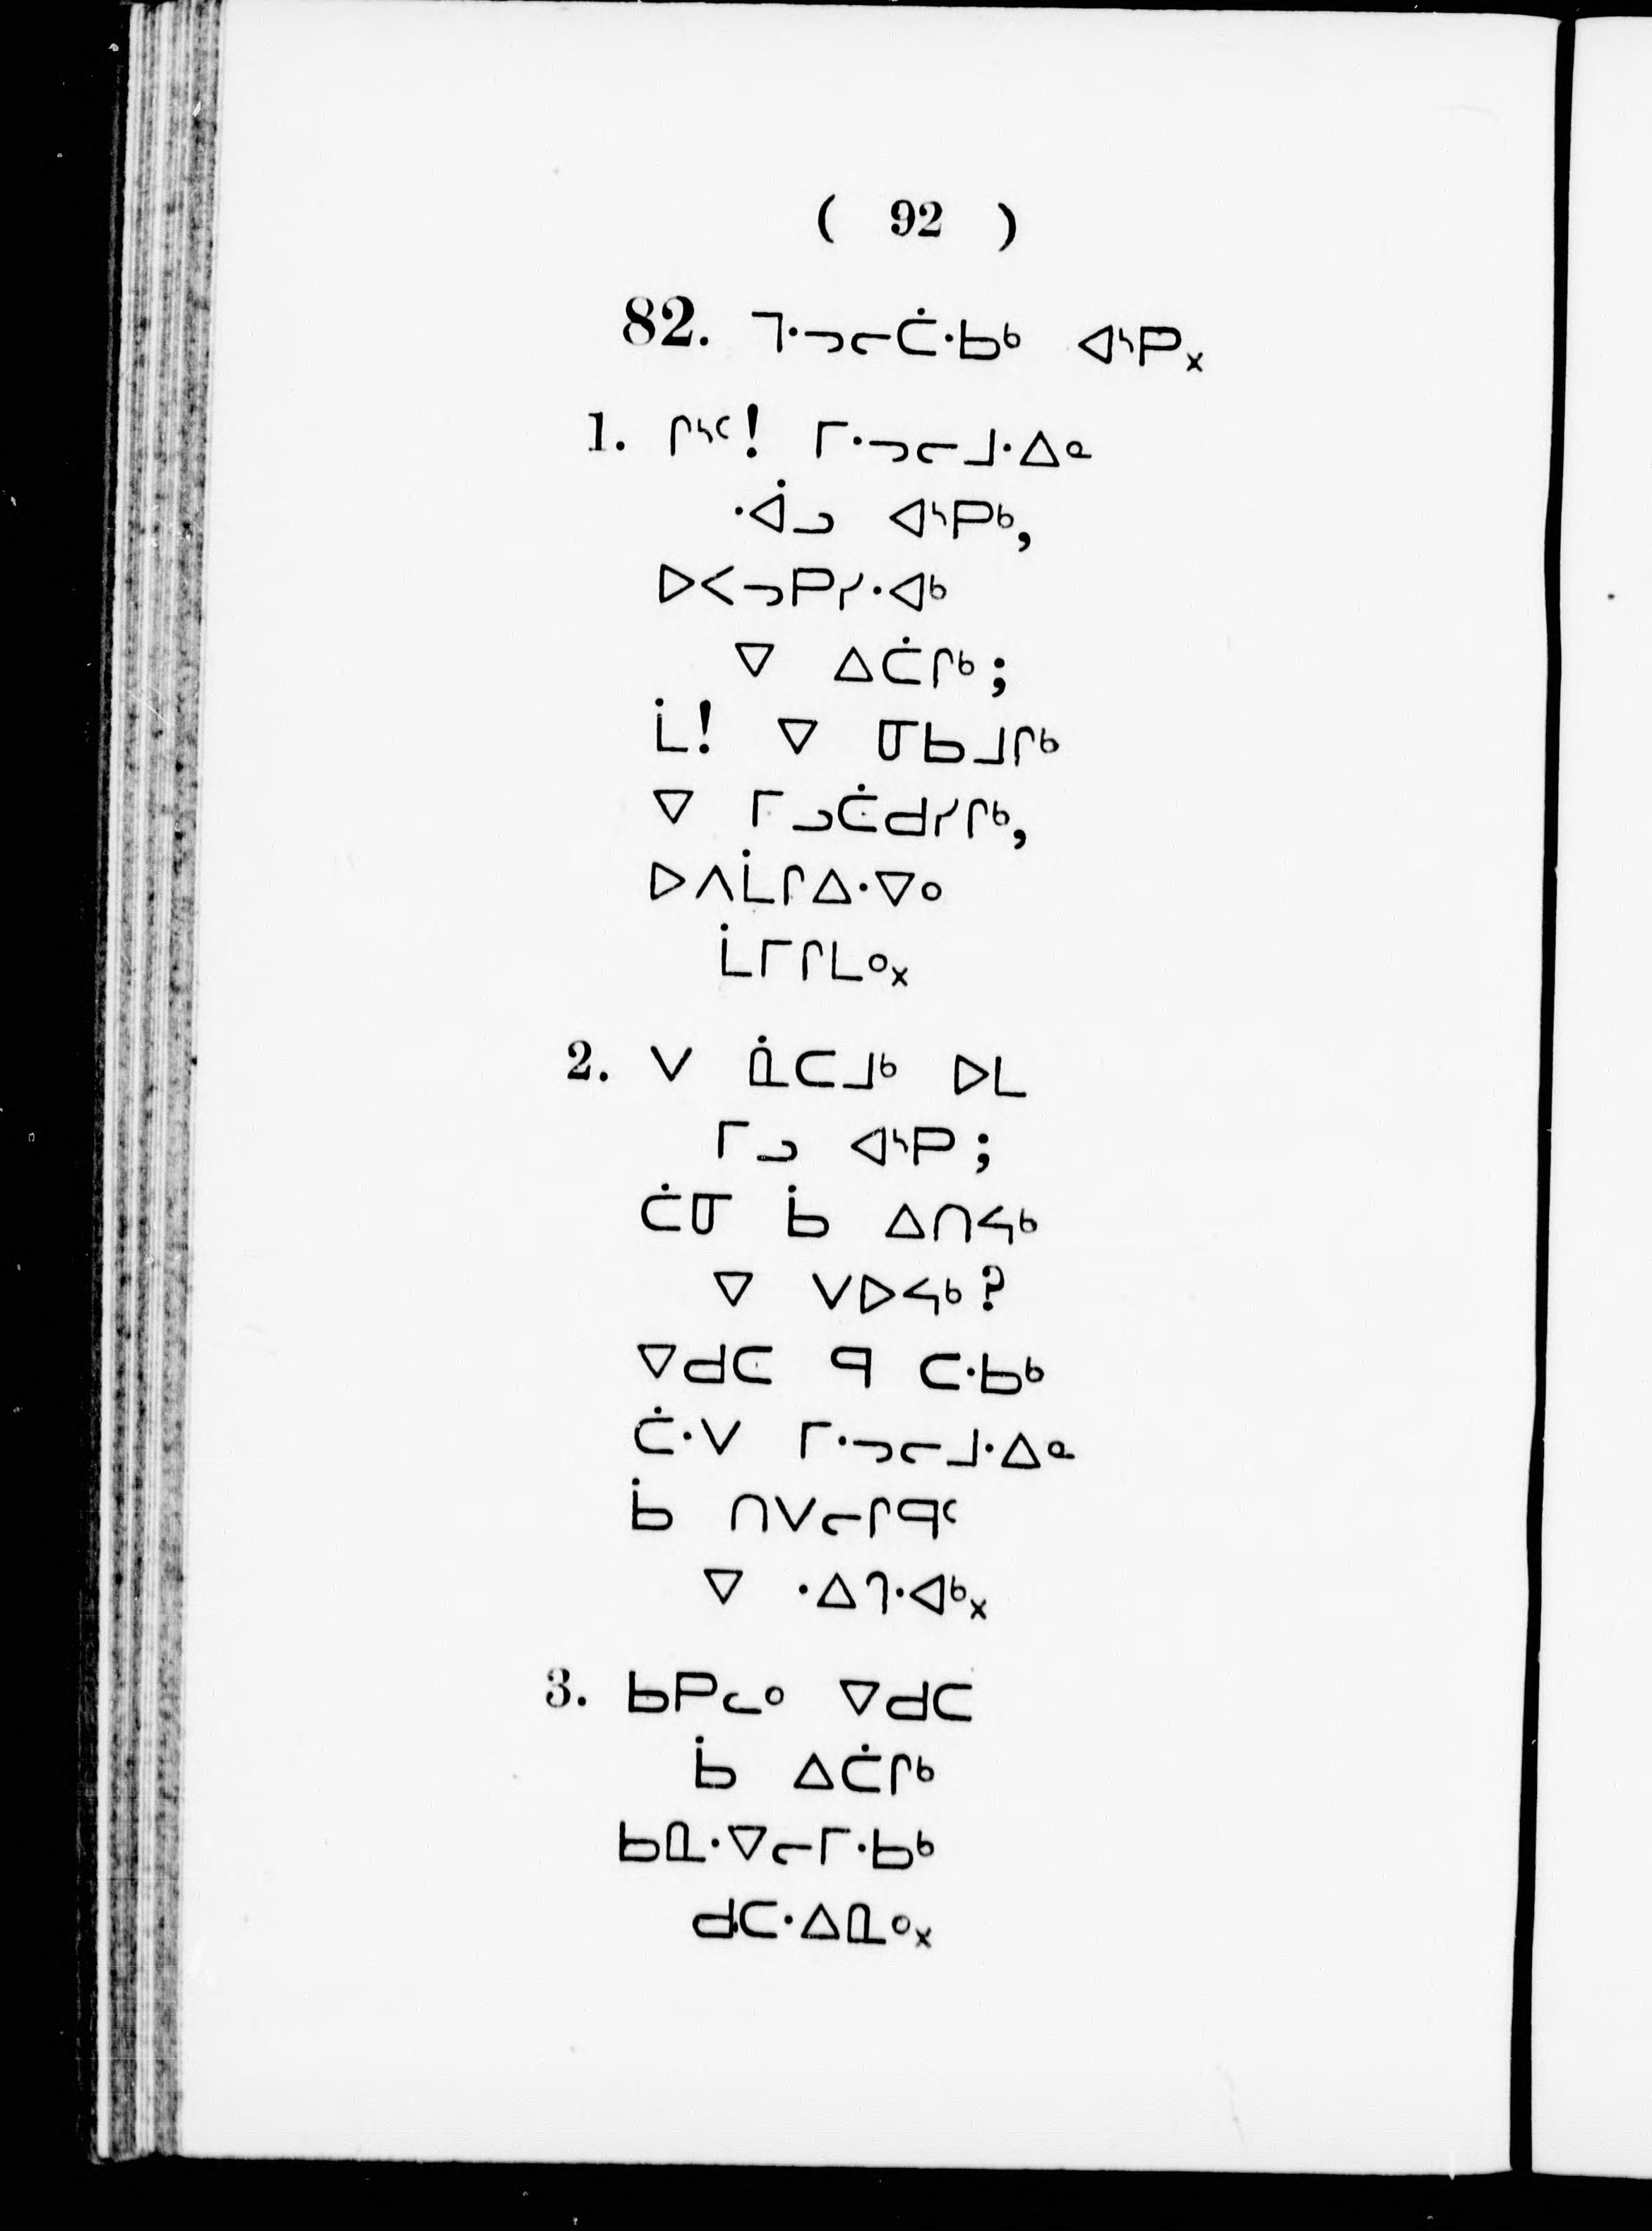 ( 92 )
82. ᒣᐧᓓᓕᑖᐧᑲᒃ ᐊᔅᑭ᙮
1. ᒋᔅᑦ! ᒥᐧᓓᓕᒧᐧᐃᓐ
ᐧᐋᓗ ᐊᔅᑭᒃ,
ᐅᐸᓓᑭᓯᐧᐊᒃ
ᐁ ᐃᑖᒋᒃ;
ᒫ! ᐁ ᓂᑲᒧᒋᒃ
ᐁ ᒥᓗᑖᑯᓯᒋᒃ,
ᐅᐱᒫᒋᐃᐧᐁᐤ
ᒫᒥᒋᒪᐤ᙮
2. ᐯ ᓈᑕᒧᒃ ᐅᒪ
ᒥᓗ ᐊᔅᑭ;
ᑖᓂ ᑳ ᐃᑎᔭᒃ
ᐁ ᐯᐅᔭᒃ?
ᐁᑯᑕ ᑫ ᑕᐧᑲᒃ
ᑖᐧᐯ ᒥᐧᓓᓕᒧᐧᐃᓐ
ᑳ ᑎᐯᓕᒋᑫᑦ
ᐁ ᐧᐃᒉᐧᐊᒃ᙮
3. ᑲᑭᓚᐤ ᐁᑯᑕ
ᑳ ᐃᑖᒋᒃ
ᑲᓇᐧᐁᓕᒥᐧᑲᒃ
ᑯᑕᐧᐃᓇᐤ᙮